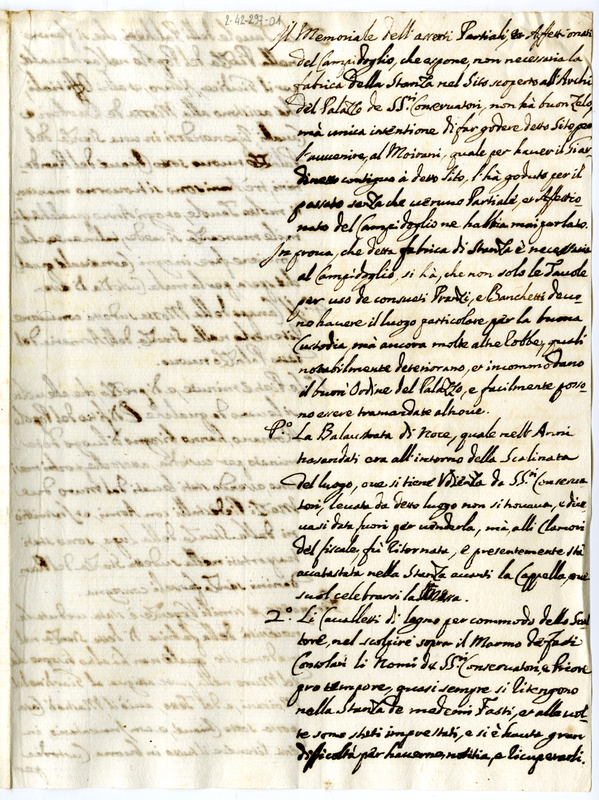 2-42-297-01
Il Memoriale dell'asserti Partiali, et Affettionati
del Campidoglio, che espone, non necessaria la
fabrica della Stanza nel Sito scoperto all'Archi
del Palazzo de SS.ri Conservatori, non hà buon Zelo,
mà unica intentione di far godere detto Sito per
l'avvenire, al Moirani, quale per haver il Giar
dinetto contiguo à detto Sito, l'hà goduto per il
passato senza che veruno Partiale, et Affettio
nato del Campidoglio ne habbia mai parlato.
In prova, che detta fabrica di Stanza è necessaria
al Campidoglio, si hà, che non solo le Tavole
per uso de consueti Pranzi, e Banchetti devo
no havere il luogo particolare per la buona
Custodia, mà ancora molte altre Robbe, quali
notabilmente deteriorano, et incommodano
il buon Ordine del Palazzo, e facilmente posso
no essere tramandate altrove.
P.o La Balaustrata di Noce, quale nell'Anni
trasandati era all'intorno della Scalinata
del luogo, ove si tiene Udienza da SS.ri Conserva
tori, levata da detto luogo non si trovava, e dice
vasi data fuori per venderla, mà alli Clamori
del fiscale, fù ritornata, e presentemente stà
accatastata nella Stanza avanti la Cappella, ove
suol celebrarsi la Messa.
2.o Li Cavalletti di legno per commodo dello Scul
tore, nel scolpire sopra il Marmo de fasti
Consolari li Nomi de SS.ri Conservatori, e Priore
pro tempore, quasi sempre si ritengono
nella Stanza de medemi Fasti, et alle vol
te sono stati imprestati, e si è hauta gran
difficoltà per haverne notitia, e ricuperarli.